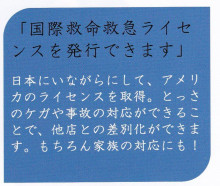 「国際救命救急ライセ
ンスを発行できます」
日本にいながらにして、アメリ
カのライセンスを取得。とっさ
のケガや事故の対応ができるこ
とで、他店との差別化ができま
す。もちろん家族の対応にも！